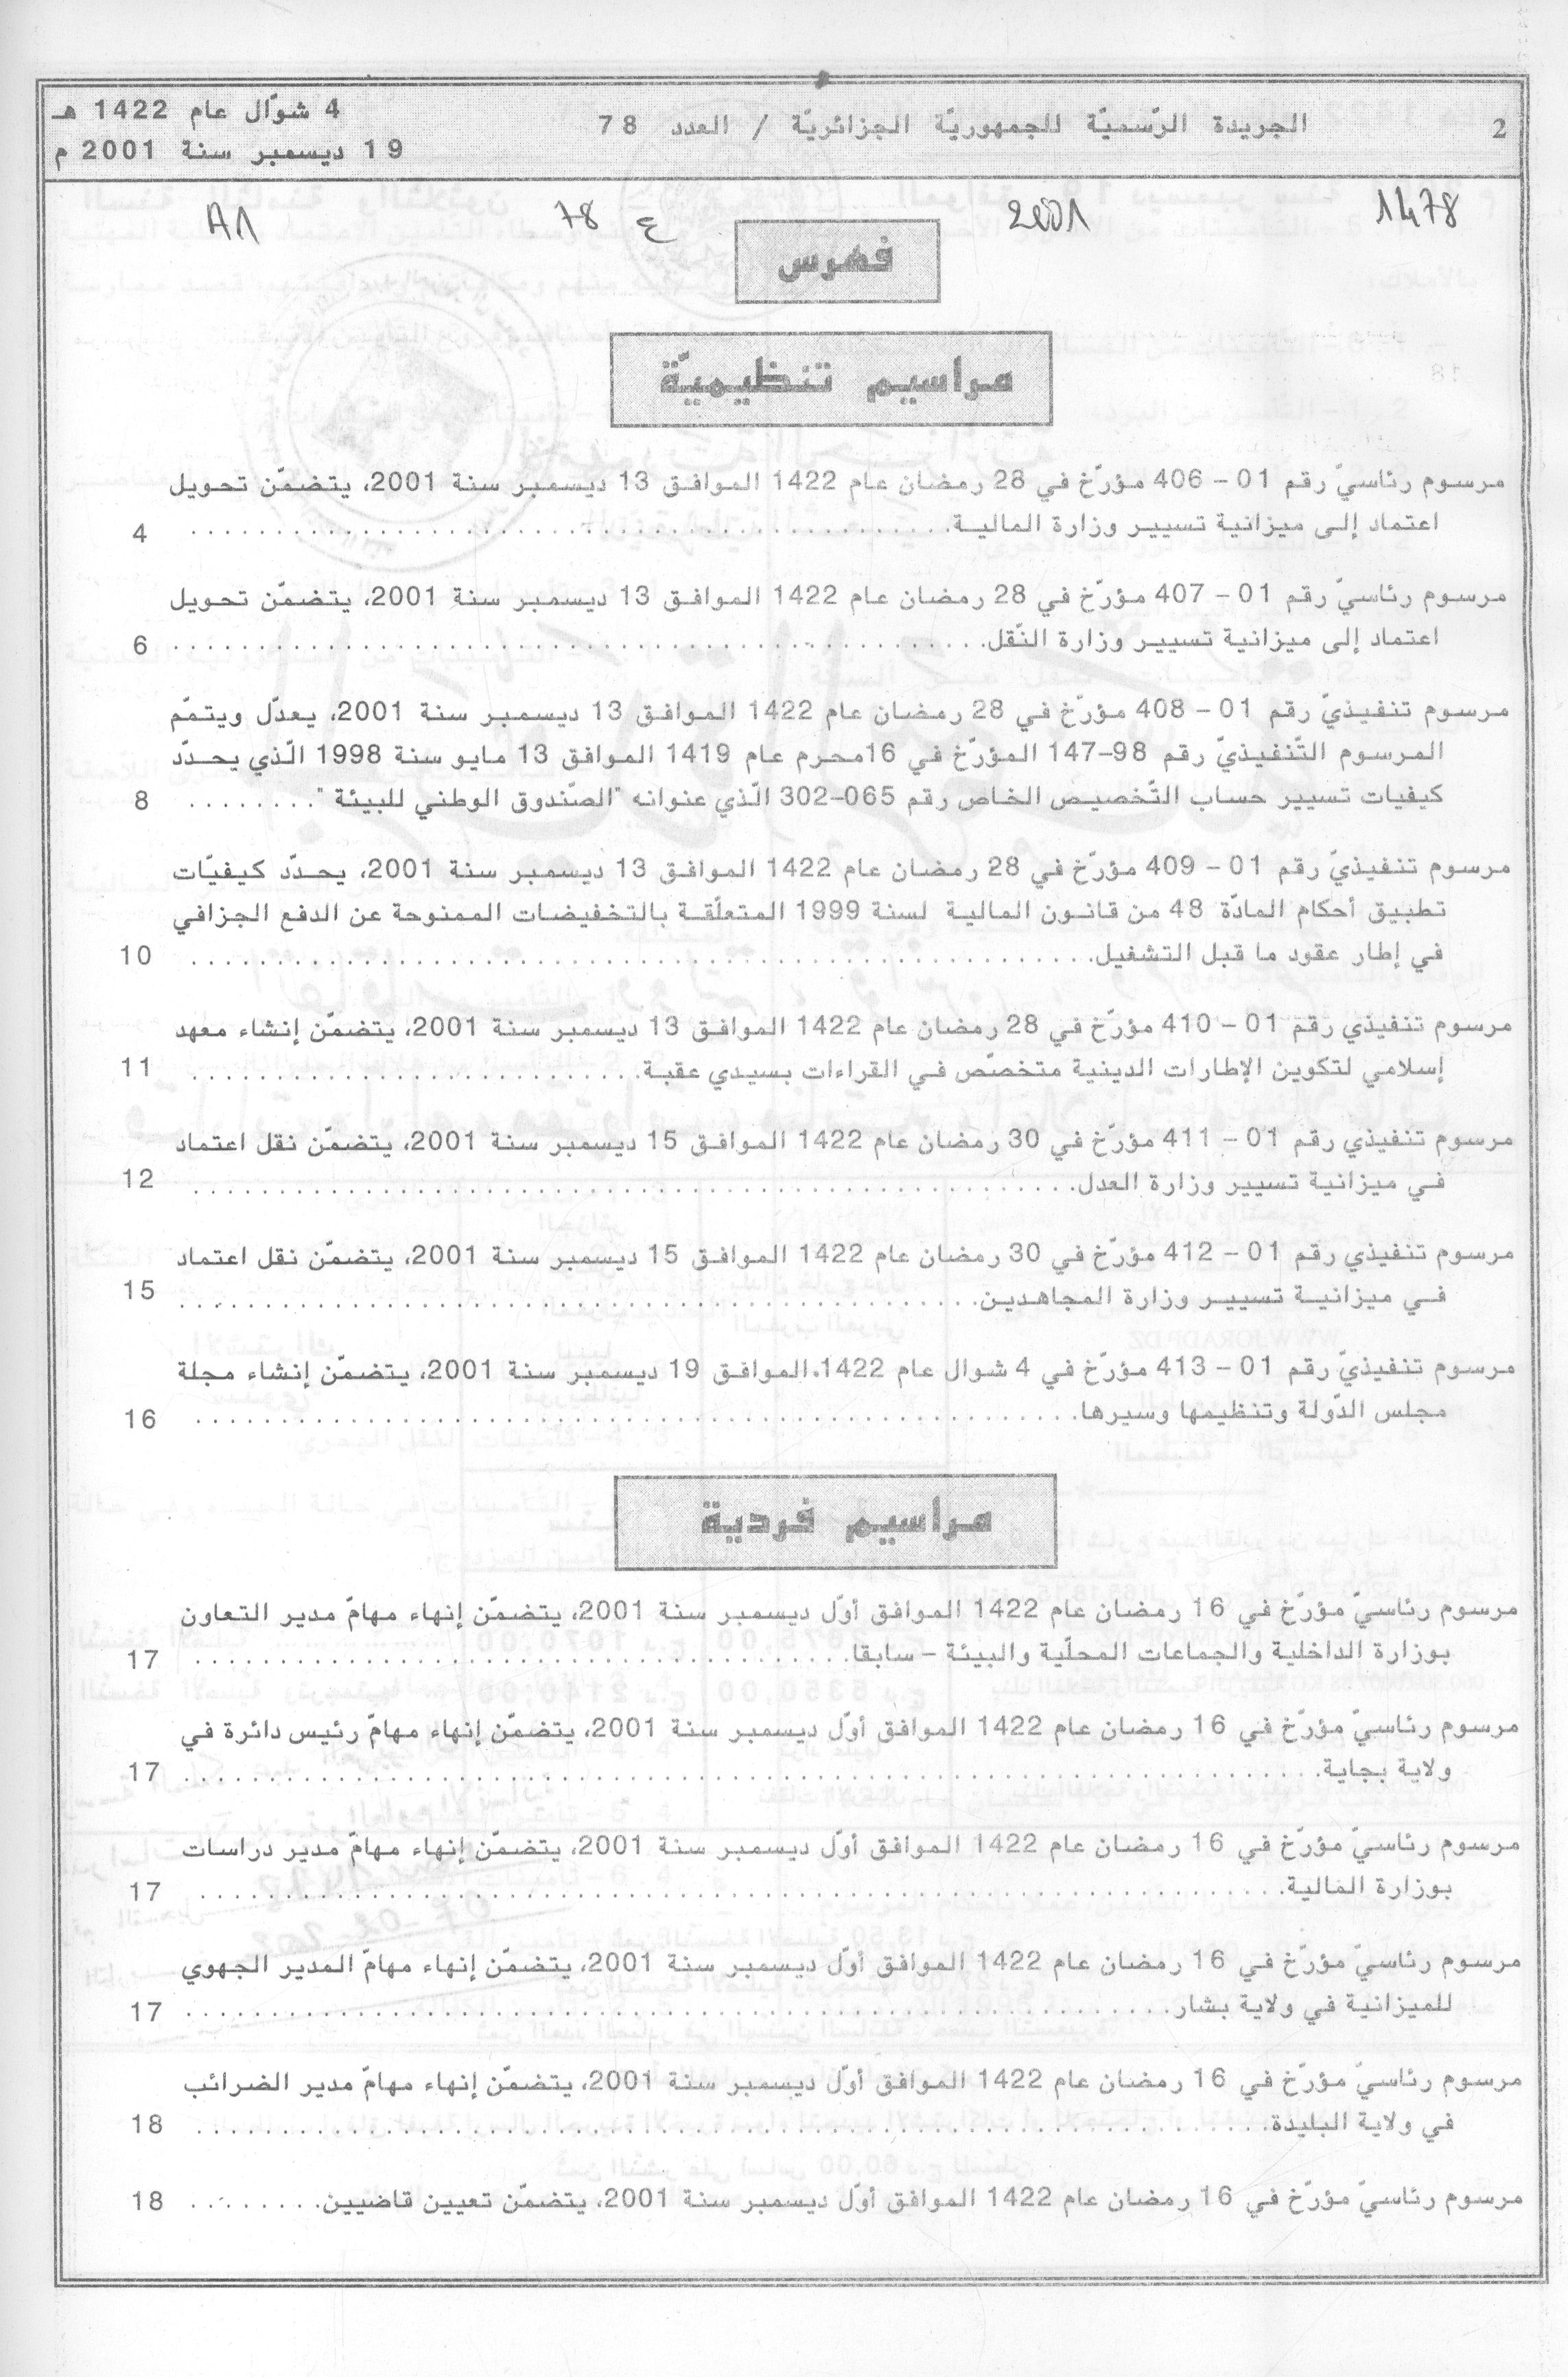 2 الجريدة الرّسميّة للجمهوريّة الجزائريّة / العدد 78
4 شوّال عام 1422 هـ
19 ديسمبر سنة 2001 م
1478 2001 ع 78 A1
فهرس
مراسيم تنظيميّة
مرسوم رئاسيّ رقم 01 - 406 مؤرّخ في 28 رمضان عام 1422 الموافق 13 ديسمبر سنة 2001، يتضمّن تحويل
اعتماد إلى ميزانية تسيير وزارة المالية. . . . . . . . . . 4
مرسوم رئاسيّ رقم 01 - 407 مؤرّخ في 28 رمضان عام 1422 الموافق 13 ديسمبر سنة 2001، يتضمّن تحويل
اعتماد إلى ميزانية تسيير وزارة النّقل. . . . . . . . . . 6
مرسوم تنفيذيّ رقم 01 - 408 مؤرّخ في 28 رمضان عام 1422 الموافق 13 ديسمبر سنة 2001، يعدّل ويتمّم
المرسوم التّنفيذيّ رقم 98-147 المؤرّخ في 16محرم عام 1419 الموافق 13 مايو سنة 1998 الّذي يحدّد
كيفيات تسيير حساب التّخصيص الخاص رقم 065-302 الّذي عنوانه "الصّندوق الوطني للبيئة ". . . . . . . . 8
مرسوم تنفيذيّ رقم 01 - 409 مؤرّخ في 28 رمضان عام 1422 الموافق 13 ديسمبر سنة 2001، يحدّد كيفيّات
تطبيق أحكام المادّة 48 من قانون المالية لسنة 1999 المتعلّقة بالتخفيضات الممنوحة عن الدفع الجزافي
في إطار عقود ما قبل التشغيل. . . . . . . . . . 10
مرسوم تنفيذي رقم 01 - 410 مؤرّخ في 28 رمضان عام 1422 الموافق 13 ديسمبر سنة 2001، يتضمّن إنشاء معهد
إسلامي لتكوين الإطارات الدينية متخصّص في القراءات بسيدي عقبة. . . . . . . . . . 11
مرسوم تنفيذي رقم 01 - 411 مؤرّخ في 30 رمضان عام 1422 الموافق 15 ديسمبر سنة 2001، يتضمّن نقل اعتماد
في ميزانية تسيير وزارة العدل. . . . . . . . . . 12
مرسوم تنفيذي رقم 01 - 412 مؤرّخ في 30 رمضان عام 1422 الموافق 15 ديسمبر سنة 2001، يتضمّن نقل اعتماد
في ميزانية تسيير وزارة المجاهدين. . . . . . . . . . 15
مرسوم تنفيذيّ رقم 01 - 413 مؤرّخ في 4 شوال عام 1422، الموافق 19 ديسمبر سنة 2001، يتضمّن إنشاء مجلة
مجلس الدّولة وتنظيمها وسيرها. . . . . . . . . . 16
مراسيم فردية
مرسوم رئاسيّ مؤرّخ في 16 رمضان عام 1422 الموافق أوّل ديسمبر سنة 2001، يتضمّن إنهاء مهامّ مدير التعاون
بوزارة الداخلية والجماعات المحلّية والبيئة - سابقا. . . . . . . . . . 17
مرسوم رئاسيّ مؤرّخ في 16 رمضان عام 1422 الموافق أوّل ديسمبر سنة 2001، يتضمّن إنهاء مهامّ رئيس دائرة في
ولاية بجاية. . . . . . . . . . 17
مرسوم رئاسيّ مؤرّخ في 16 رمضان عام 1422 الموافق أوّل ديسمبر سنة 2001، يتضمّن إنهاء مهامّ مدير دراسات
بوزارة المالية. . . . . . . . . . 17
مرسوم رئاسيّ مؤرّخ في 16 رمضان عام 1422 الموافق أوّل ديسمبر سنة 2001، يتضمّن إنهاء مهامّ المدير الجهوي
للميزانية في ولاية بشار. . . . . . . . . . 17
مرسوم رئاسيّ مؤرّخ في 16 رمضان عام 1422 الموافق أوّل ديسمبر سنة 2001، يتضمّن إنهاء مهامّ مدير الضرائب
في ولاية البليدة. . . . . . . . . . 18
مرسوم رئاسيّ مؤرّخ في 16 رمضان عام 1422 الموافق أوّل ديسمبر سنة 2001، يتضمّن تعيين قاضيين. . . . . . . . 18